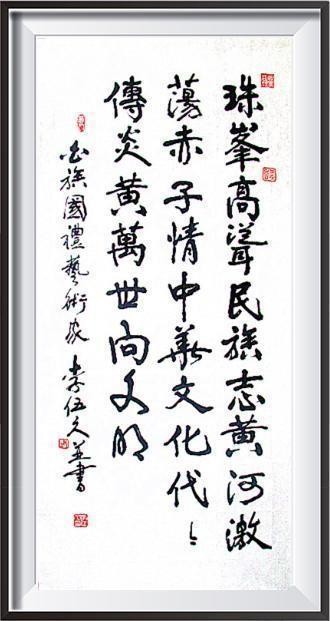 珠峯高聳民族志黄河激
蕩赤子情中華文化代々
傳炎黄萬世向文明
白族國禮藝術家李伍久並書